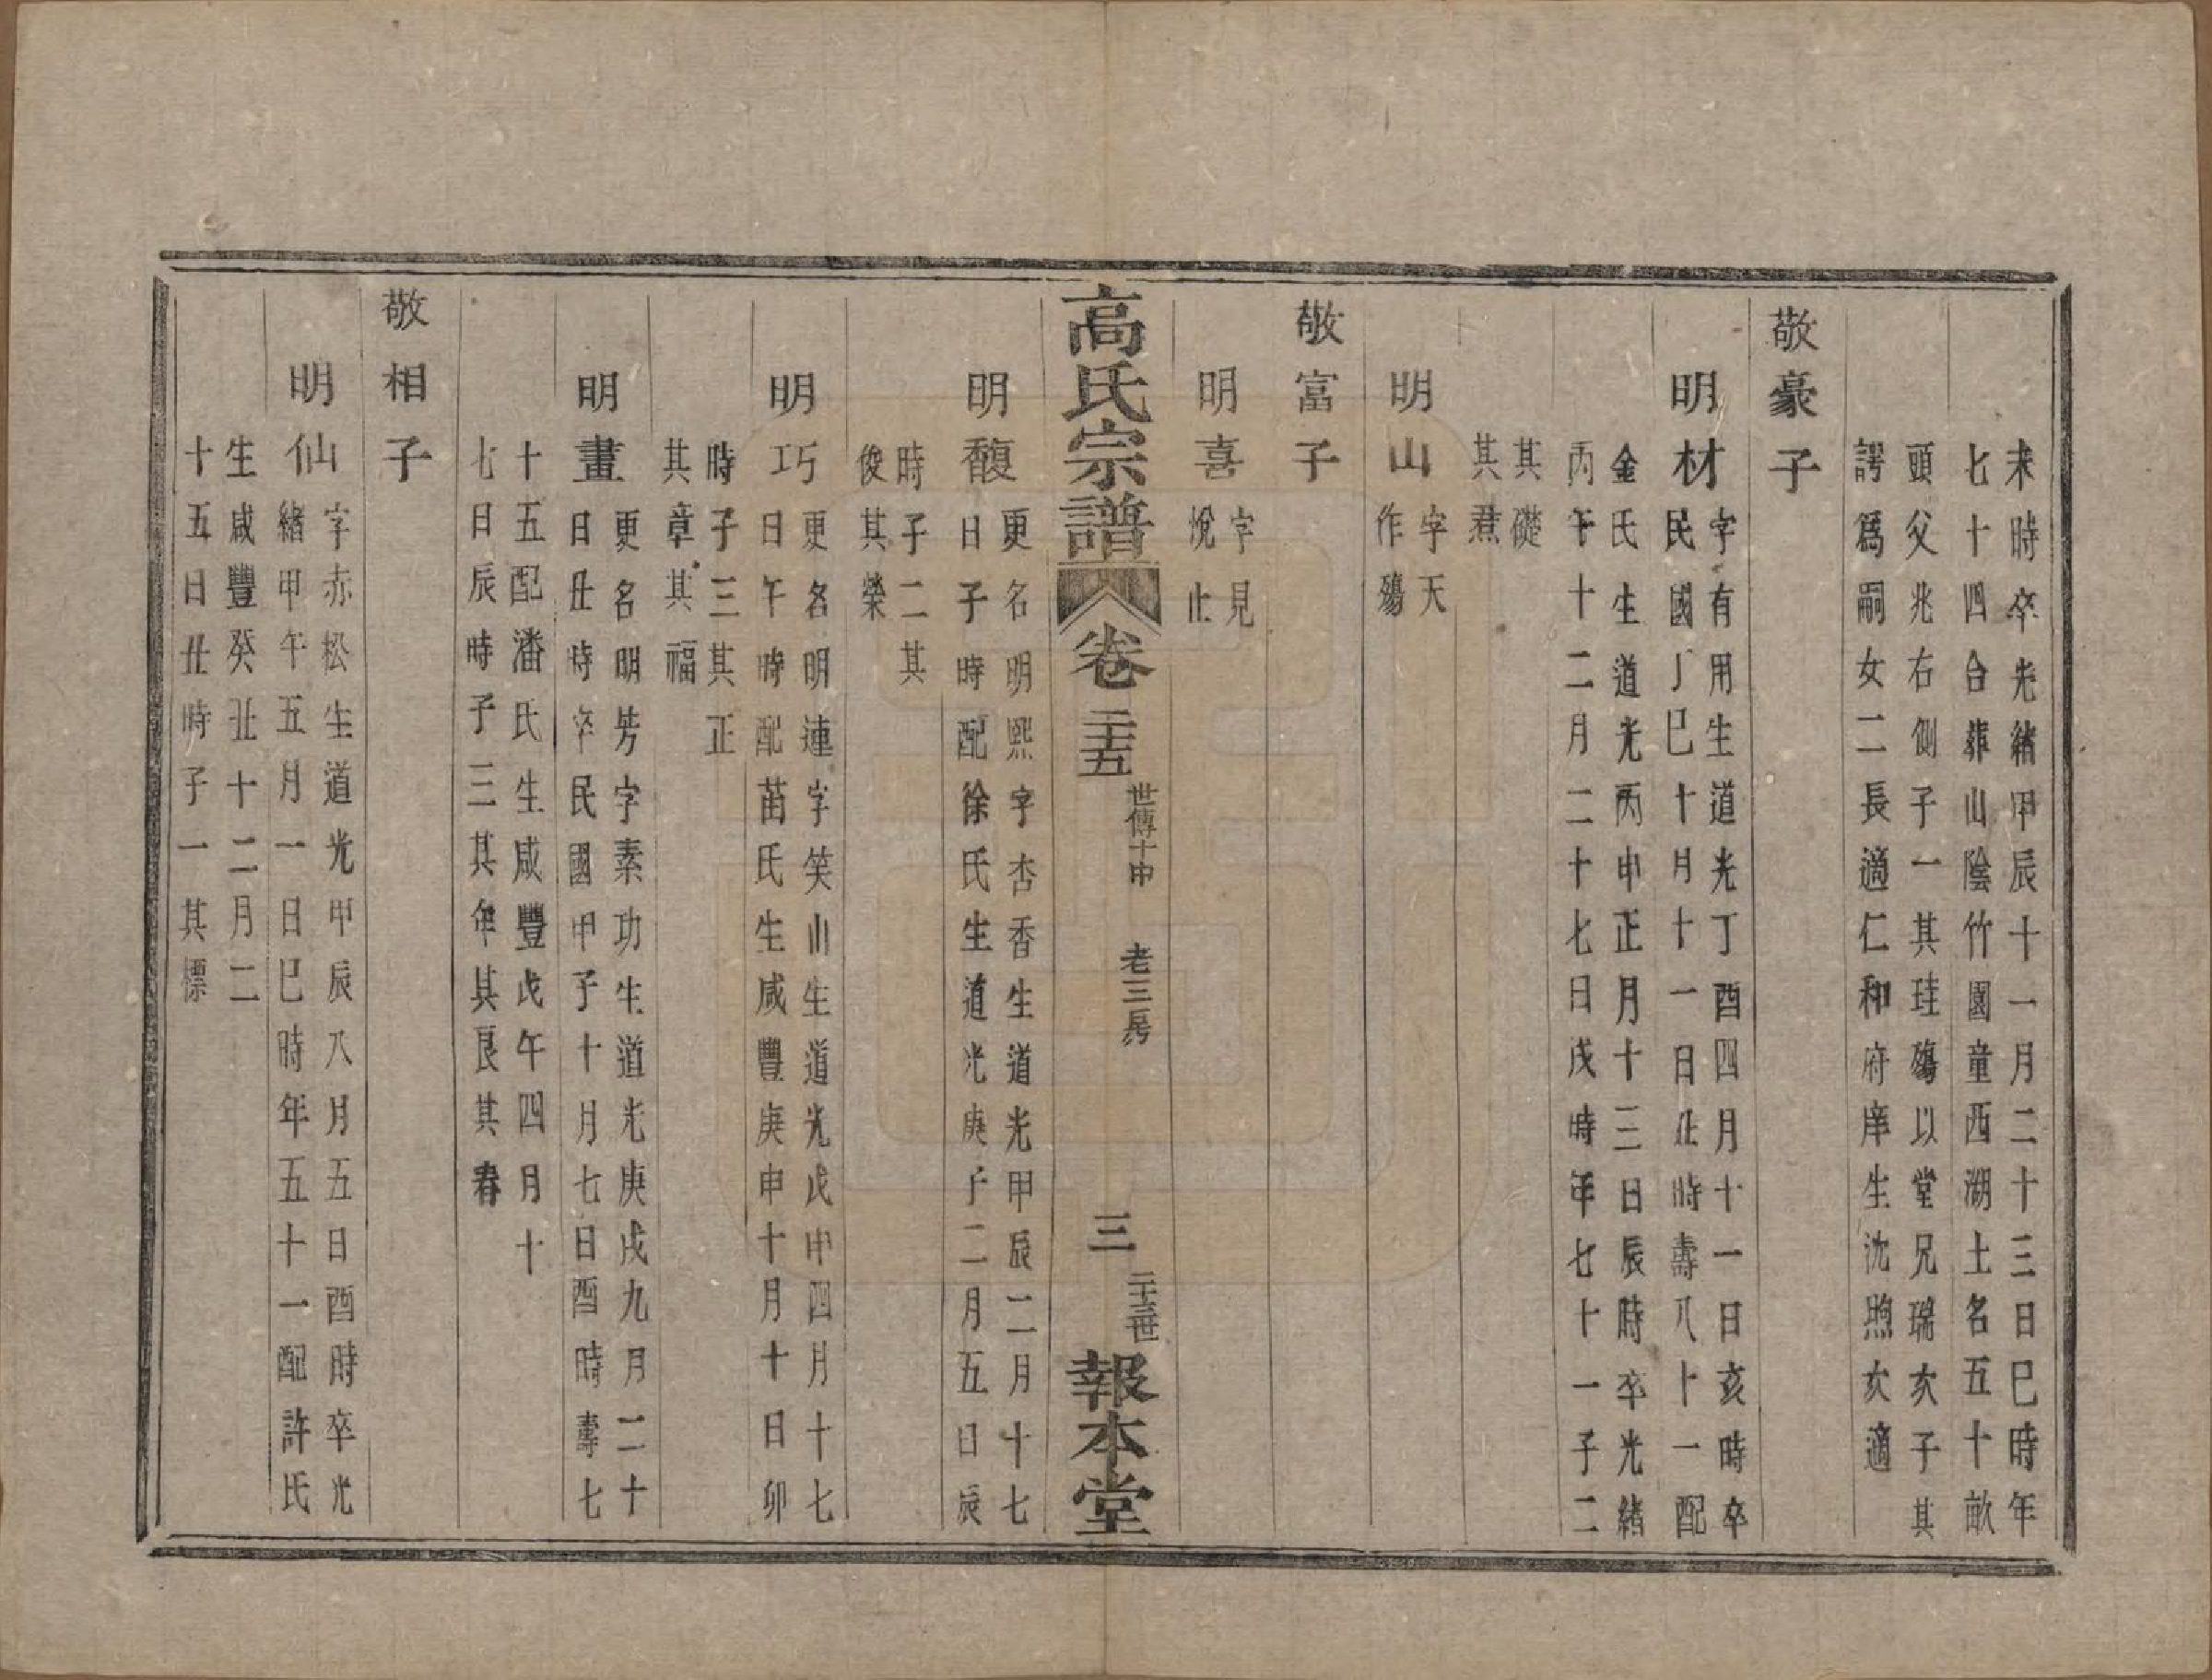 未時卒光緒甲辰十一月二十三日巳時年
七十四合葬山陰竹園童西湖土名五十畝
頭父兆右側子一其珪殤以堂兄瑞次子其
諤爲嗣女二長適仁和府庠生沈煦次適
敬豪子
明材
字有用生道光丁酉四月十一日亥時卒
民國丁巳十月十一日丑時壽八十一配
金氏生道光丙申正月十三日辰時卒光緒
丙午十二月二十七日戌時年七十一子二
其礎
其焄
明山
字天
作殤
敬富子
明喜
字見
悅止
高氏宗譜
卷二十五
世傳十申
老三房
三
二十三世
報本堂
明馥
更名明熙字杏香生道光甲辰二月十七
日子時配徐氏生道光庚子二月五日辰
時子二其
俊其榮
明巧
更名明連字笑山生道光戊申四月十七
日午時配苗氏生咸豐庚申十月十日卯
時子三其正
其章其福
明畫
更名明芳字素功生道光庚戌九月二十
日丑時卒民國甲子十月七日酉時壽七
十五配潘氏生咸豐戊午四月十
七日辰時子三其年其良其春
敬相子
明仙
字赤松生道光甲辰八月五日酉時卒光
緒甲午五月一日巳時年五十一配許氏
生咸豐癸丑十二月二
十五日丑時子一其標